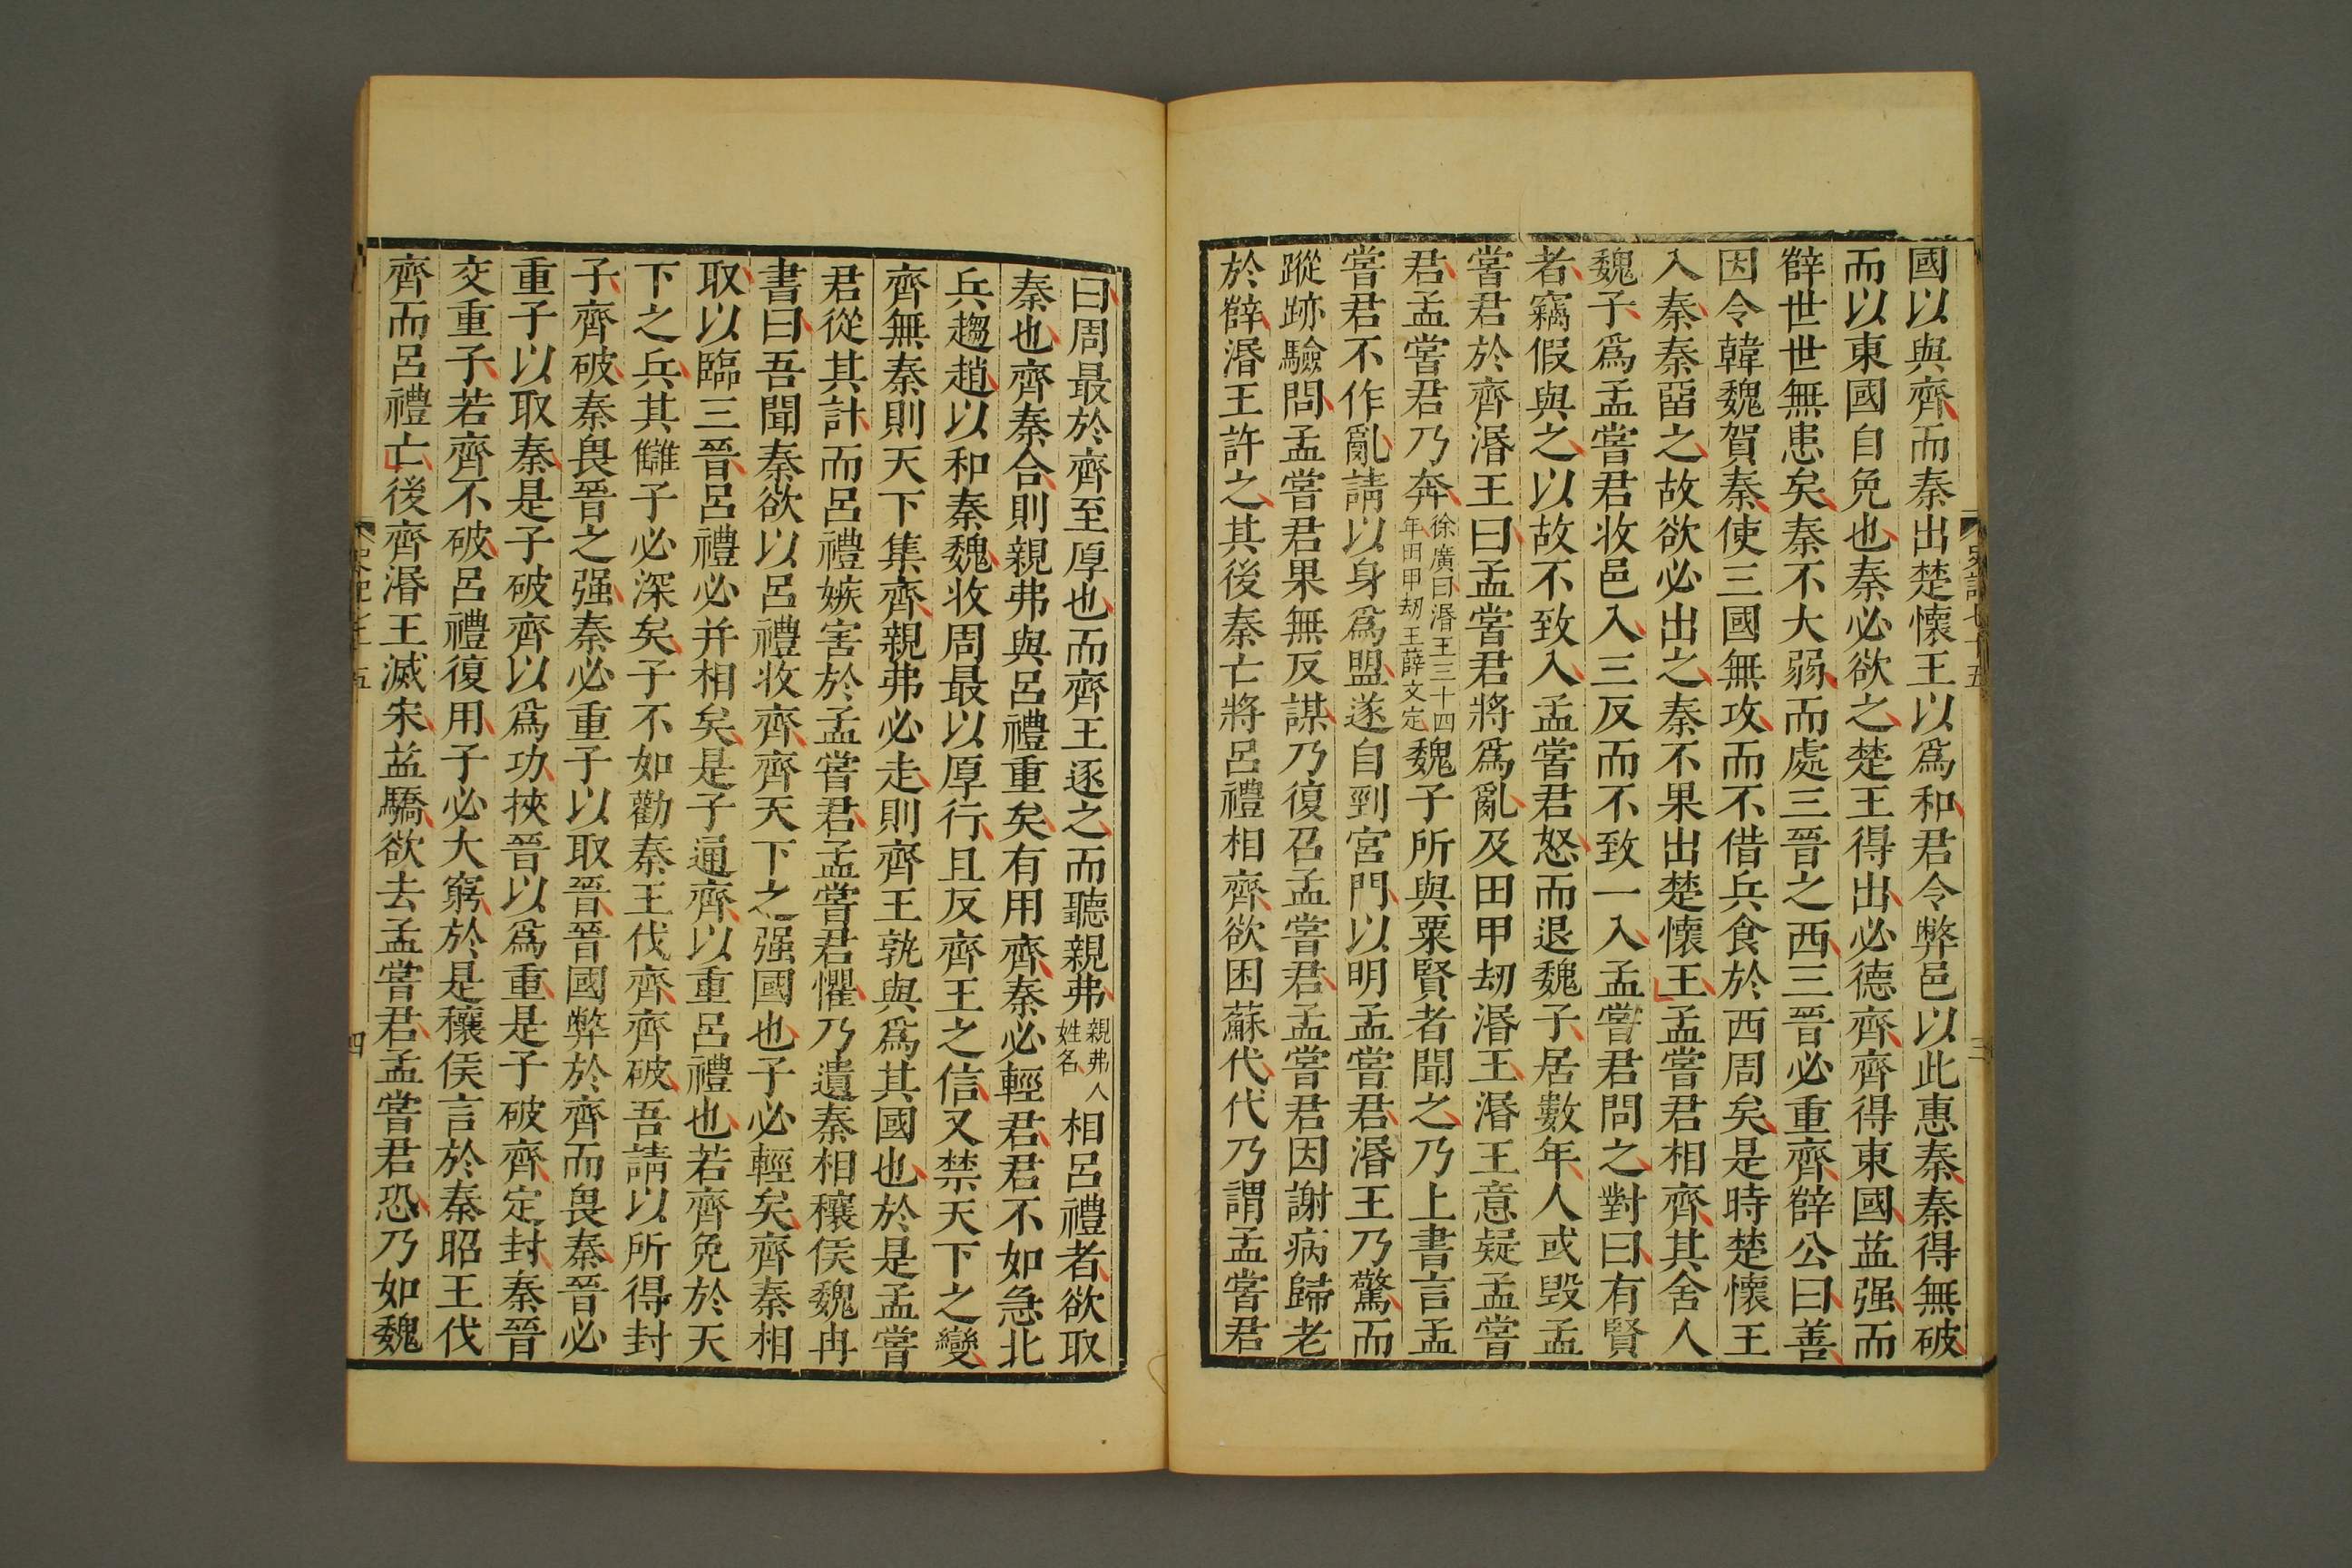 國以與齊而秦出楚懷王以爲和君令弊邑以此惠秦秦得無破
而以東國自免也秦必欲之楚王得出必德齊齊得東國益强而
薛世世無患矣秦不大弱而處三晉之西三晉必重齊薛公曰善
因令韓魏賀秦使三國無攻而不借兵食於西周矣是時楚懷王
入秦秦留之故欲必出之秦不果出楚懷王孟嘗君相齊其舍人
魏子爲孟嘗君收邑入三反而不致一入孟嘗君問之對曰有賢
者竊假與之以故不致入孟嘗君怒而退魏子居數年人或毀孟
嘗君於齊湣王曰孟嘗君將爲亂及田甲劫湣王湣王意疑孟嘗
君孟嘗君乃奔徐廣曰湣王三十四年田甲劫王薛文定魏子所與粟賢者聞之乃上書言孟
嘗君不作亂請以身爲盟遂自剄宮門以明孟嘗君湣王乃驚而
蹤跡驗問孟嘗君果無反謀乃復召孟嘗君孟嘗君因謝病歸老
於薛湣王許之其後秦亡將呂禮相齊欲困蘇代代乃謂孟嘗君
史記七十五
三
曰周最於齊至厚也而齊王逐之而聽親弗親弗人姓名相呂禮者欲取
秦也齊秦合則親弗與呂禮重矣有用齊秦必輕君君不如急北
兵趨趙以和秦魏收周最以厚行且反齊王之信又禁天下之變
齊無秦則天下集齊親弗必走則齊王孰與爲其國也於是孟嘗
君從其計而呂禮嫉害於孟嘗君孟嘗君懼乃遺秦相穰侯魏冉
書曰吾聞秦欲以呂禮收齊齊天下之强國也子必輕矣齊秦相
取以臨三晉呂禮必并相矣是子通齊以重呂禮也若齊免於天
下之兵其讎子必深矣子不如勸秦王伐齊齊破吾請以所得封
子齊破秦畏晉之强秦必重子以取晉晉國弊於齊而畏秦晉必
重子以取秦是子破齊以爲功挾晉以爲重是子破齊定封秦晉
交重子若齊不破呂禮復用子必大窮於是穰侯言於秦昭王伐
齊而呂禮亡後齊湣王滅宋益驕欲去孟嘗君孟嘗君恐乃如魏
史記七十五
四